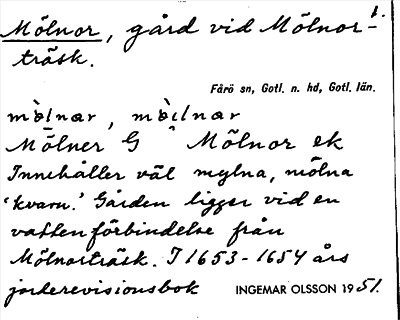 1.
Mölnor, gård vid Mölnor-
träsk.
Fårö sn, Gotl. n. hd, Gotl. län.
mö̀lnar, mö̀ilnar
Mölner G Mölnor ek
Innehåller väl mylna, mölna
'kvarn.' Gården ligger vid en
vattenförbindelse från
Mölnorträsk. I 1653-1654 års
jorderevisionsbok INGEMAR OLSSON 1951.